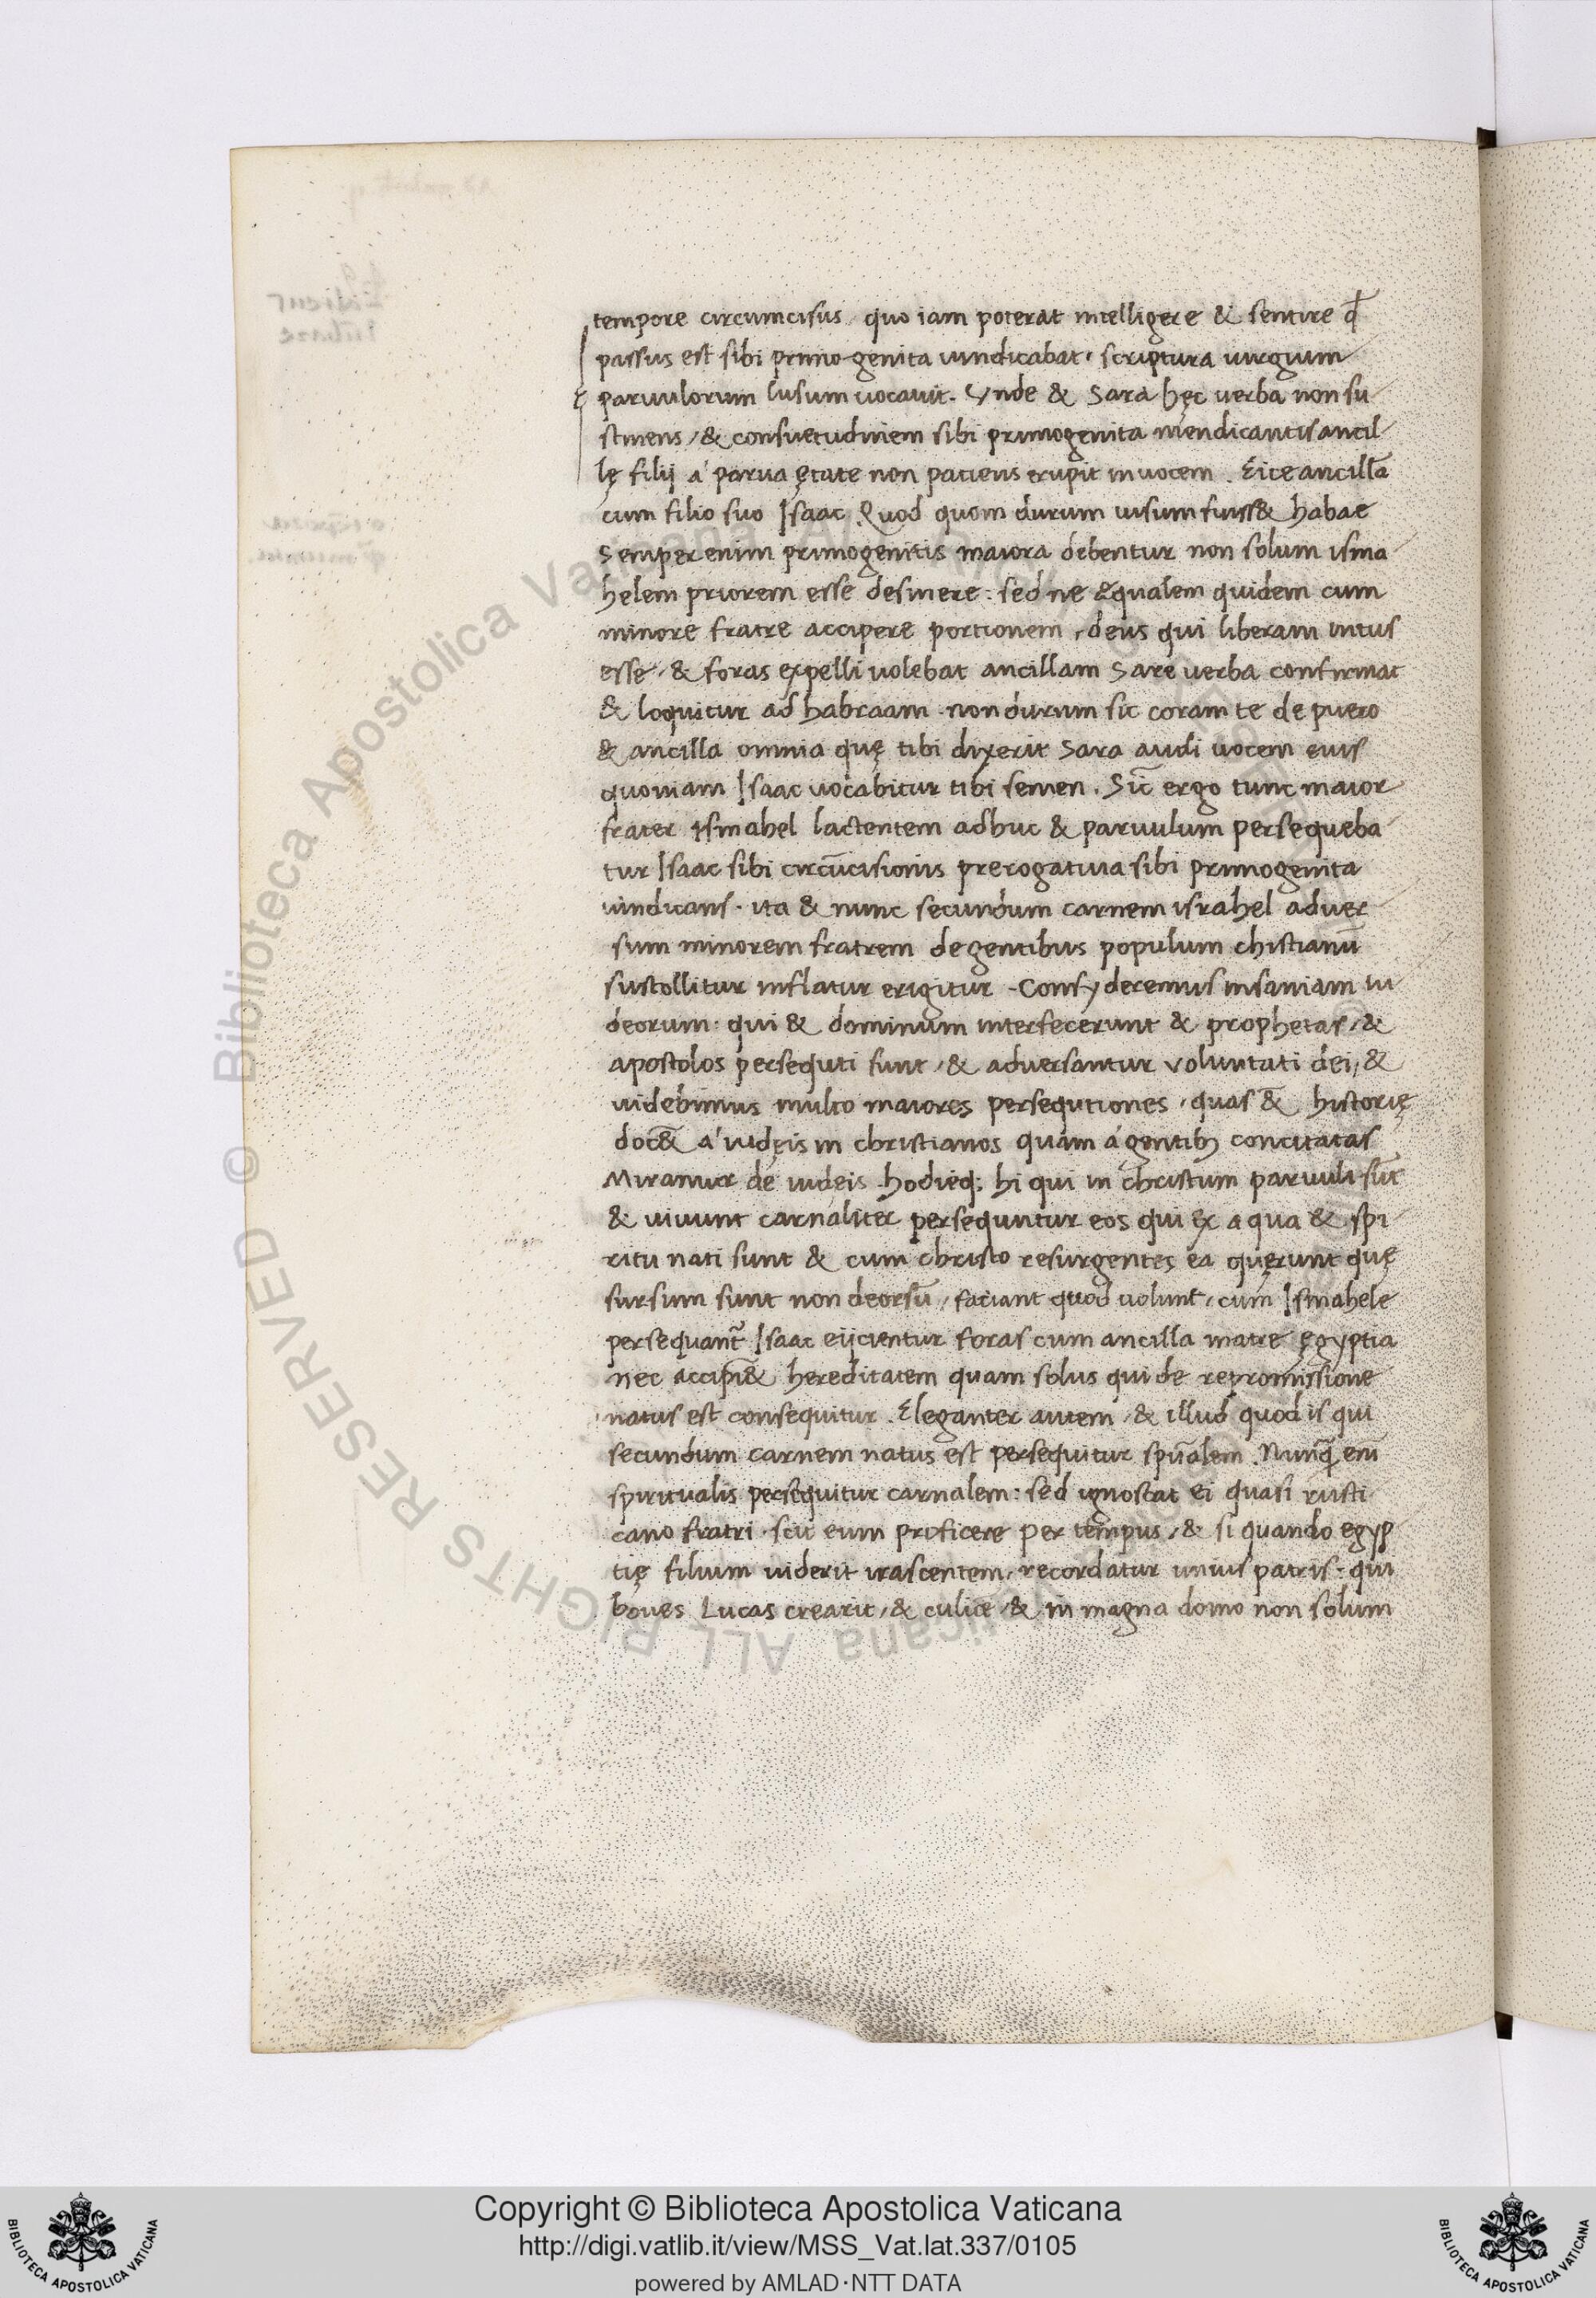 tempore circumcisus, quo iam poterat intelligere & sentire qđ
passus est sibi primo-genita uindicabat, scriptura iurgium
paruulorum lusum uocauit. Vnde & Sara hęc uerba non su-
stinens, & consuetudinem sibi primogenita mendicantis ancil-
lę filij á parua ętate non patiens erupit in uocem. Eice ancillā
cum filio suo Isaac. Quod quom durum uisum fuiss& habae
Semper enim primogenitis maiora debentur non solum isma-
helem priorem esse desinere: sed ne ęqualem quidem cum
minore fratre accipere portionem, deus qui liberam intus
esse, & foras expelli uolebat ancillam Sare uerba confirmat
& loquitur ad habraam non durum sic coram te de puero
& ancilla omnia quę tibi dixerit Sara audi uocem eius
quoniam Isaac uocabitur tibi semen. Sic̄ ergo tunc maior
frater Ismahel lactentem adhuc & paruulum persequeba-
tur Isaac sibi circūcisionis prerogatiua sibi primogenita
uindicans. ita & nunc secundum carnem israhel aduer-
sum minorem fratrem de gentibus populum chistianū
sustollitur inflatur erigitur. Consyderemus insaniam iu-
deorum: qui & dominum interfecerunt & prophetas, &
apostolos persequti sunt, & aduersantur voluntati dei, &
uidebimus multo maiores persequtiones, quas &̄ historię
doc& á iudęis in christianos quam á gentib; concitatas
Miramur de iudeis hodieq; hi qui in christum paruuli sūt
& uiuunt carnaliter persequntur eos qui ex aqua & spi-
ritu nati sunt & cum christo resurgentes ea quęrunt quę
sursum sunt non deorsū, faciant quod uolunt, cum Ismahele
persequant̄ Isaac eijcientur foras cum ancilla matre ęgyptia
nec accipi& hereditatem quam solus qui de repromissione
natus est consequitur. Eleganter autem, & illud quod is qui
secundum carnem natus est persequitur spūalem. Nunq̄ em̄
spiritualis persequitur carnalem: sed ignoscat ei quasi rusti-
cano fratri. scit eum proficere per tempus, & si quando egyp-
tię filium uiderit irascentem, recordatur unius patris: qui
boues Lucas crearit, & culicē, & in magna domo non solum
Copyright © Biblioteca Apostolica Vaticana
http://digi.vatlib.it/view/MSS_Vat.lat.337/0105
powered by AMLAD·NTT DATA